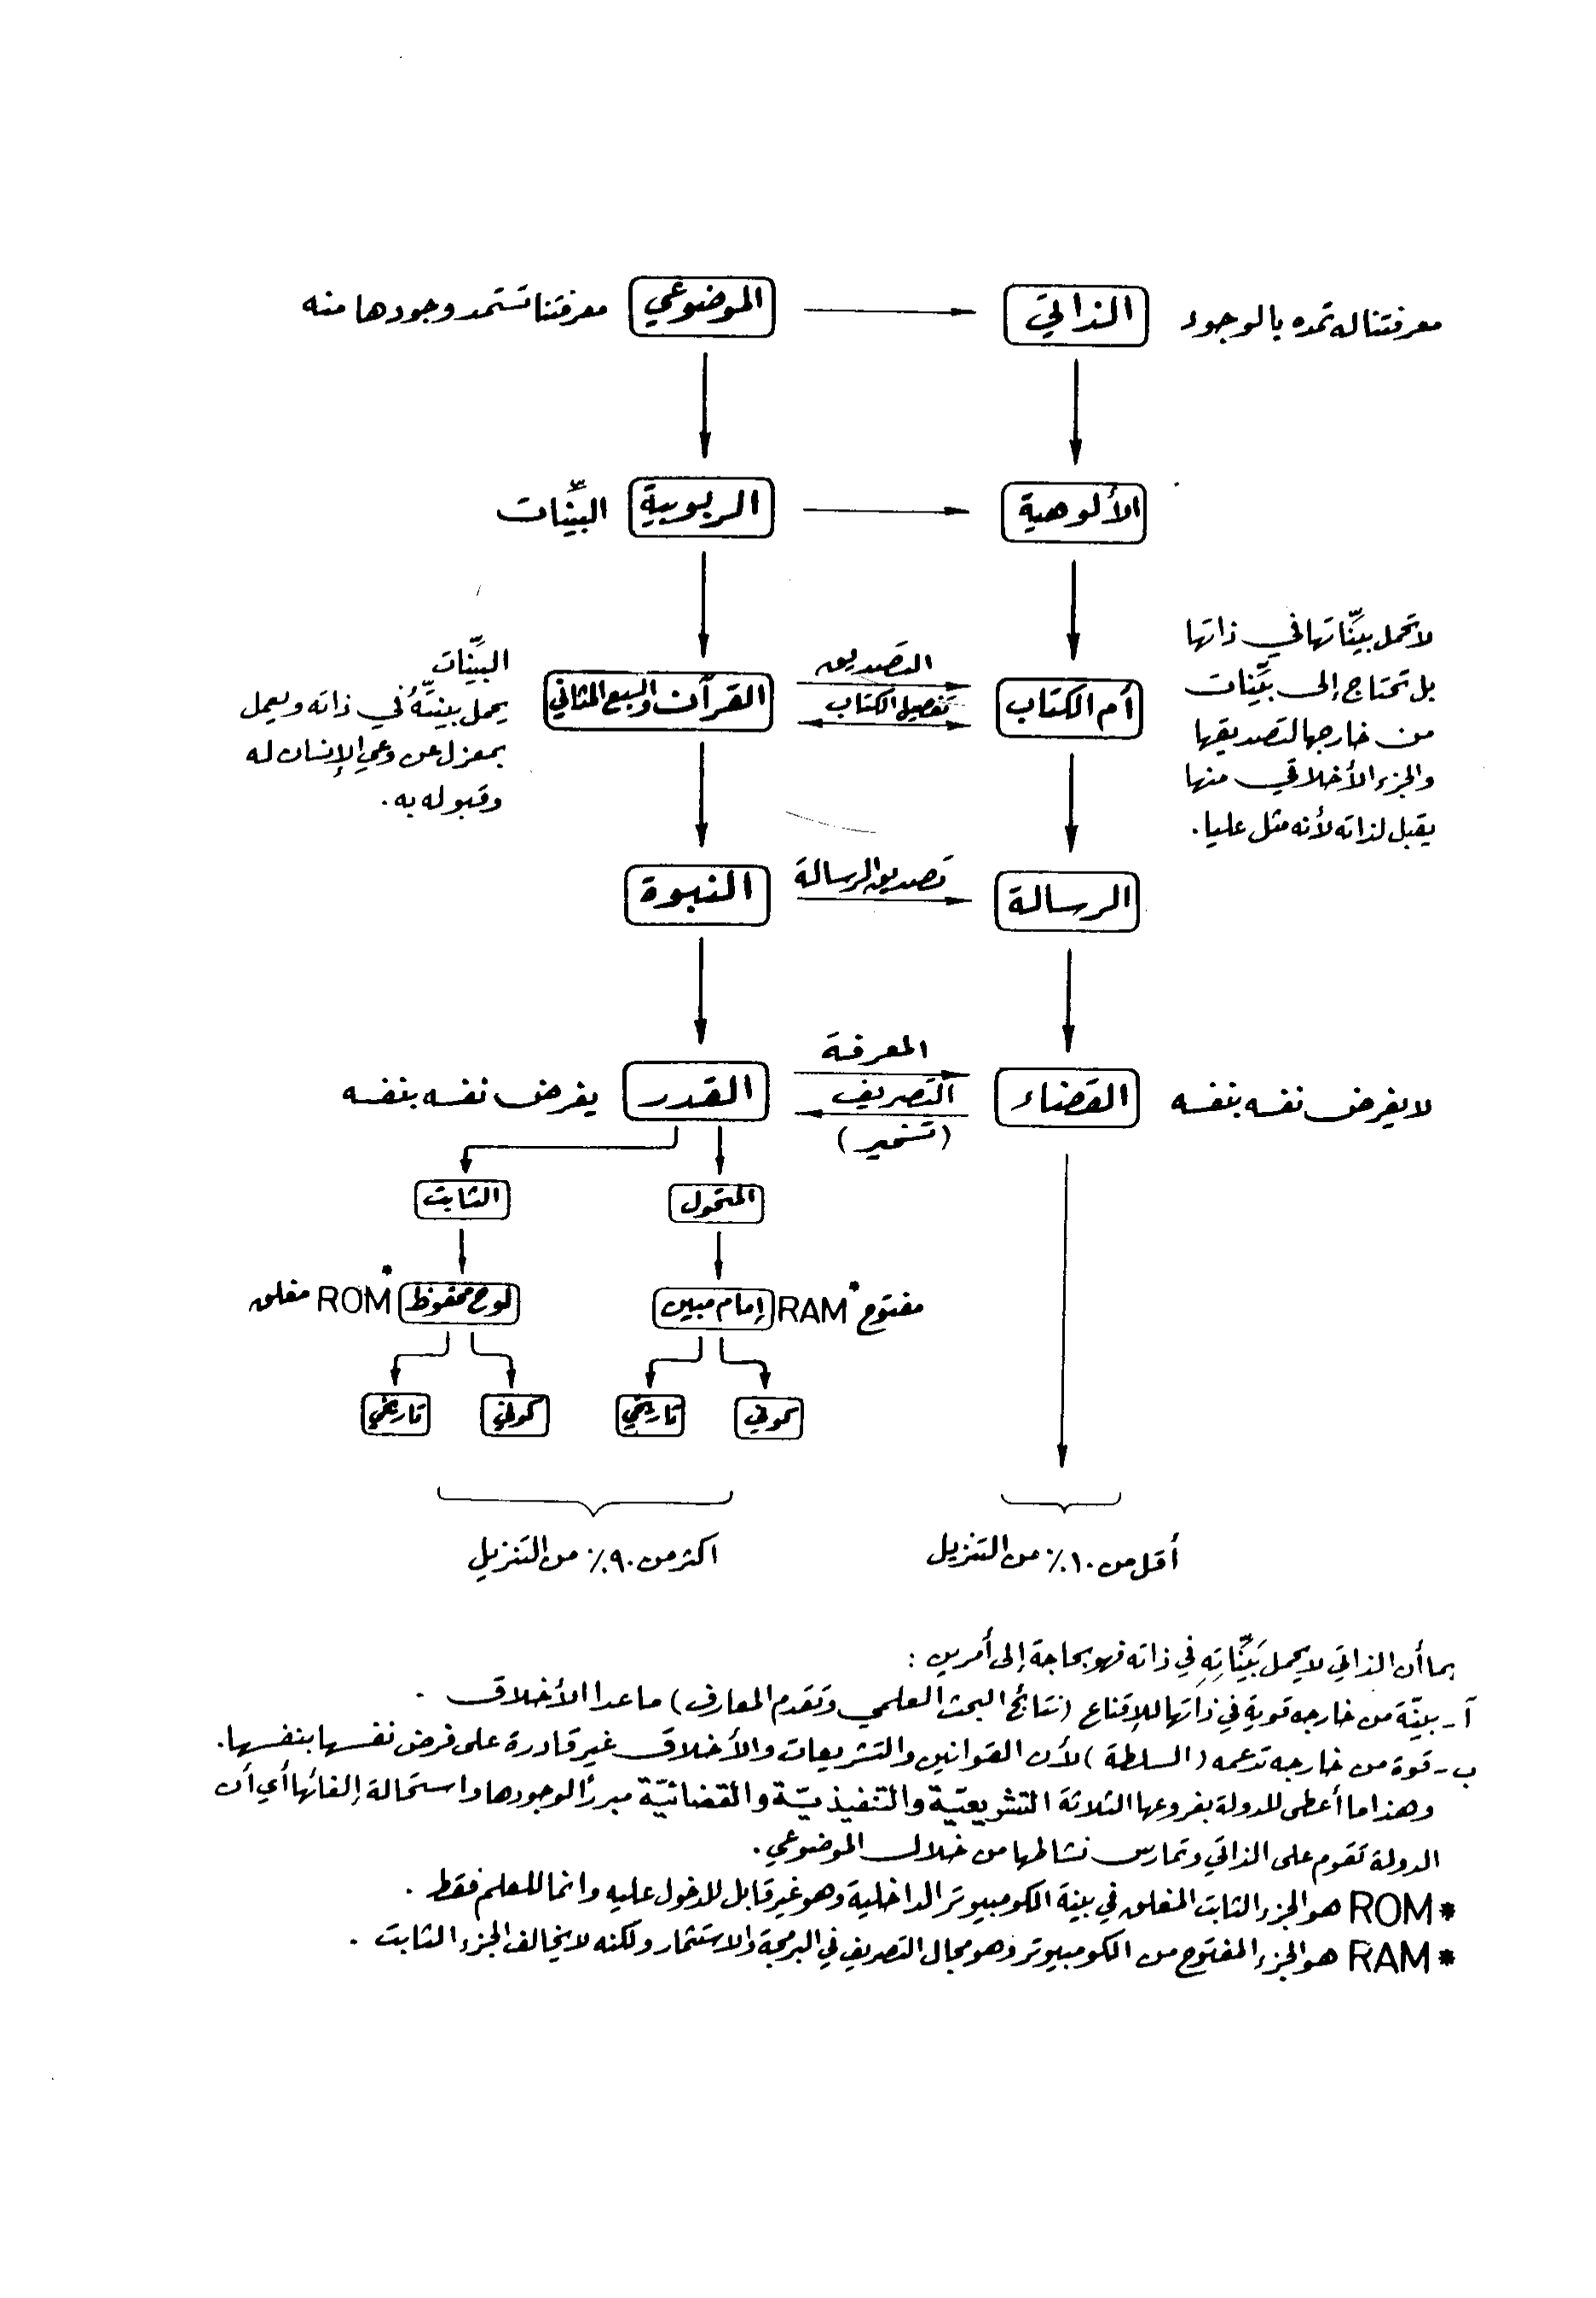 معرفتنا له تمده بالوجود
الذاتي
الموضوعي
معرفتنا تستمد وجودها منه
الألوهية
الربوبية
البيِّنات
لا تحمل بيِّناتها في ذاتها
بل تحتاج إلى بيِّنات
من خارجها لتصديقها
والجزء الأخلاقي منها
يقبل لذاته لأنه مثل عليا.
أم الكتاب
التصديق
تفصيل الكتاب
القرآن والسبع المثاني
البيِّنات
يحمل بينتَّهُ في ذاته ويعمل
بمعزل عن وعي الإنسان له
وقبوله به.
الرسالة
تصديق الرسالة
النبوة
لا يفرض نفسه بنفسه
القضاء
المعرفة
التصريف
(تسخير)
القدر
يفرض نفسه بنفسه
المتحول
الثابت
مفتوح RAM*
إمام مبين
لوح محفوظ
ROM* مغلق
كوني
تاريخي
كوني
تاريخي
أقل من ١٠٪ من التنزيل
اكثر من ٩٠٪ من التنزيل
بما أن الذاتي لا يحمل بَيِّنَاتِهِ في ذاته فهو بحاجة إلى أمرين :
آ- بينّة من خارجه قوية في ذاتها للإقناع (نتائج البحث العلمي وتقدم المعارف) ما عدا الأخلاق .
ب- قوة من خارجه تدعمه (السلطة) لأن القوانين والتشريعات والأخلاق غير قادرة على فرض نفسها بنفسها.
وهذا ما أعطى للدولة بفروعها الثلاثة التشريعيّة والتنفيذيّة والقضائيّة مبررًا لوجودها واستحالة إلغائها أي أن
الدولة تقوم على الذاتي وتمارس نشاطها من خلال الموضوعي.
* ROM هو الجزء الثابت المغلق في بنية الكومبيوتر الداخلية وهو غير قابل للدخول عليه وانما للعلم فقط .
* RAM هو الجزء المفتوح من الكومبيوتر وهو مجال التصريف في البرمجة والاستثمار ولكنه لا يخالف الجزء الثابت .